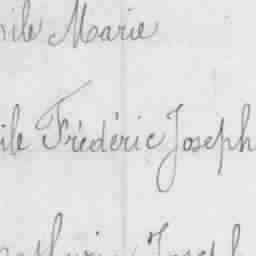 ile Marie
ile Frédéric Joseph
Joseph